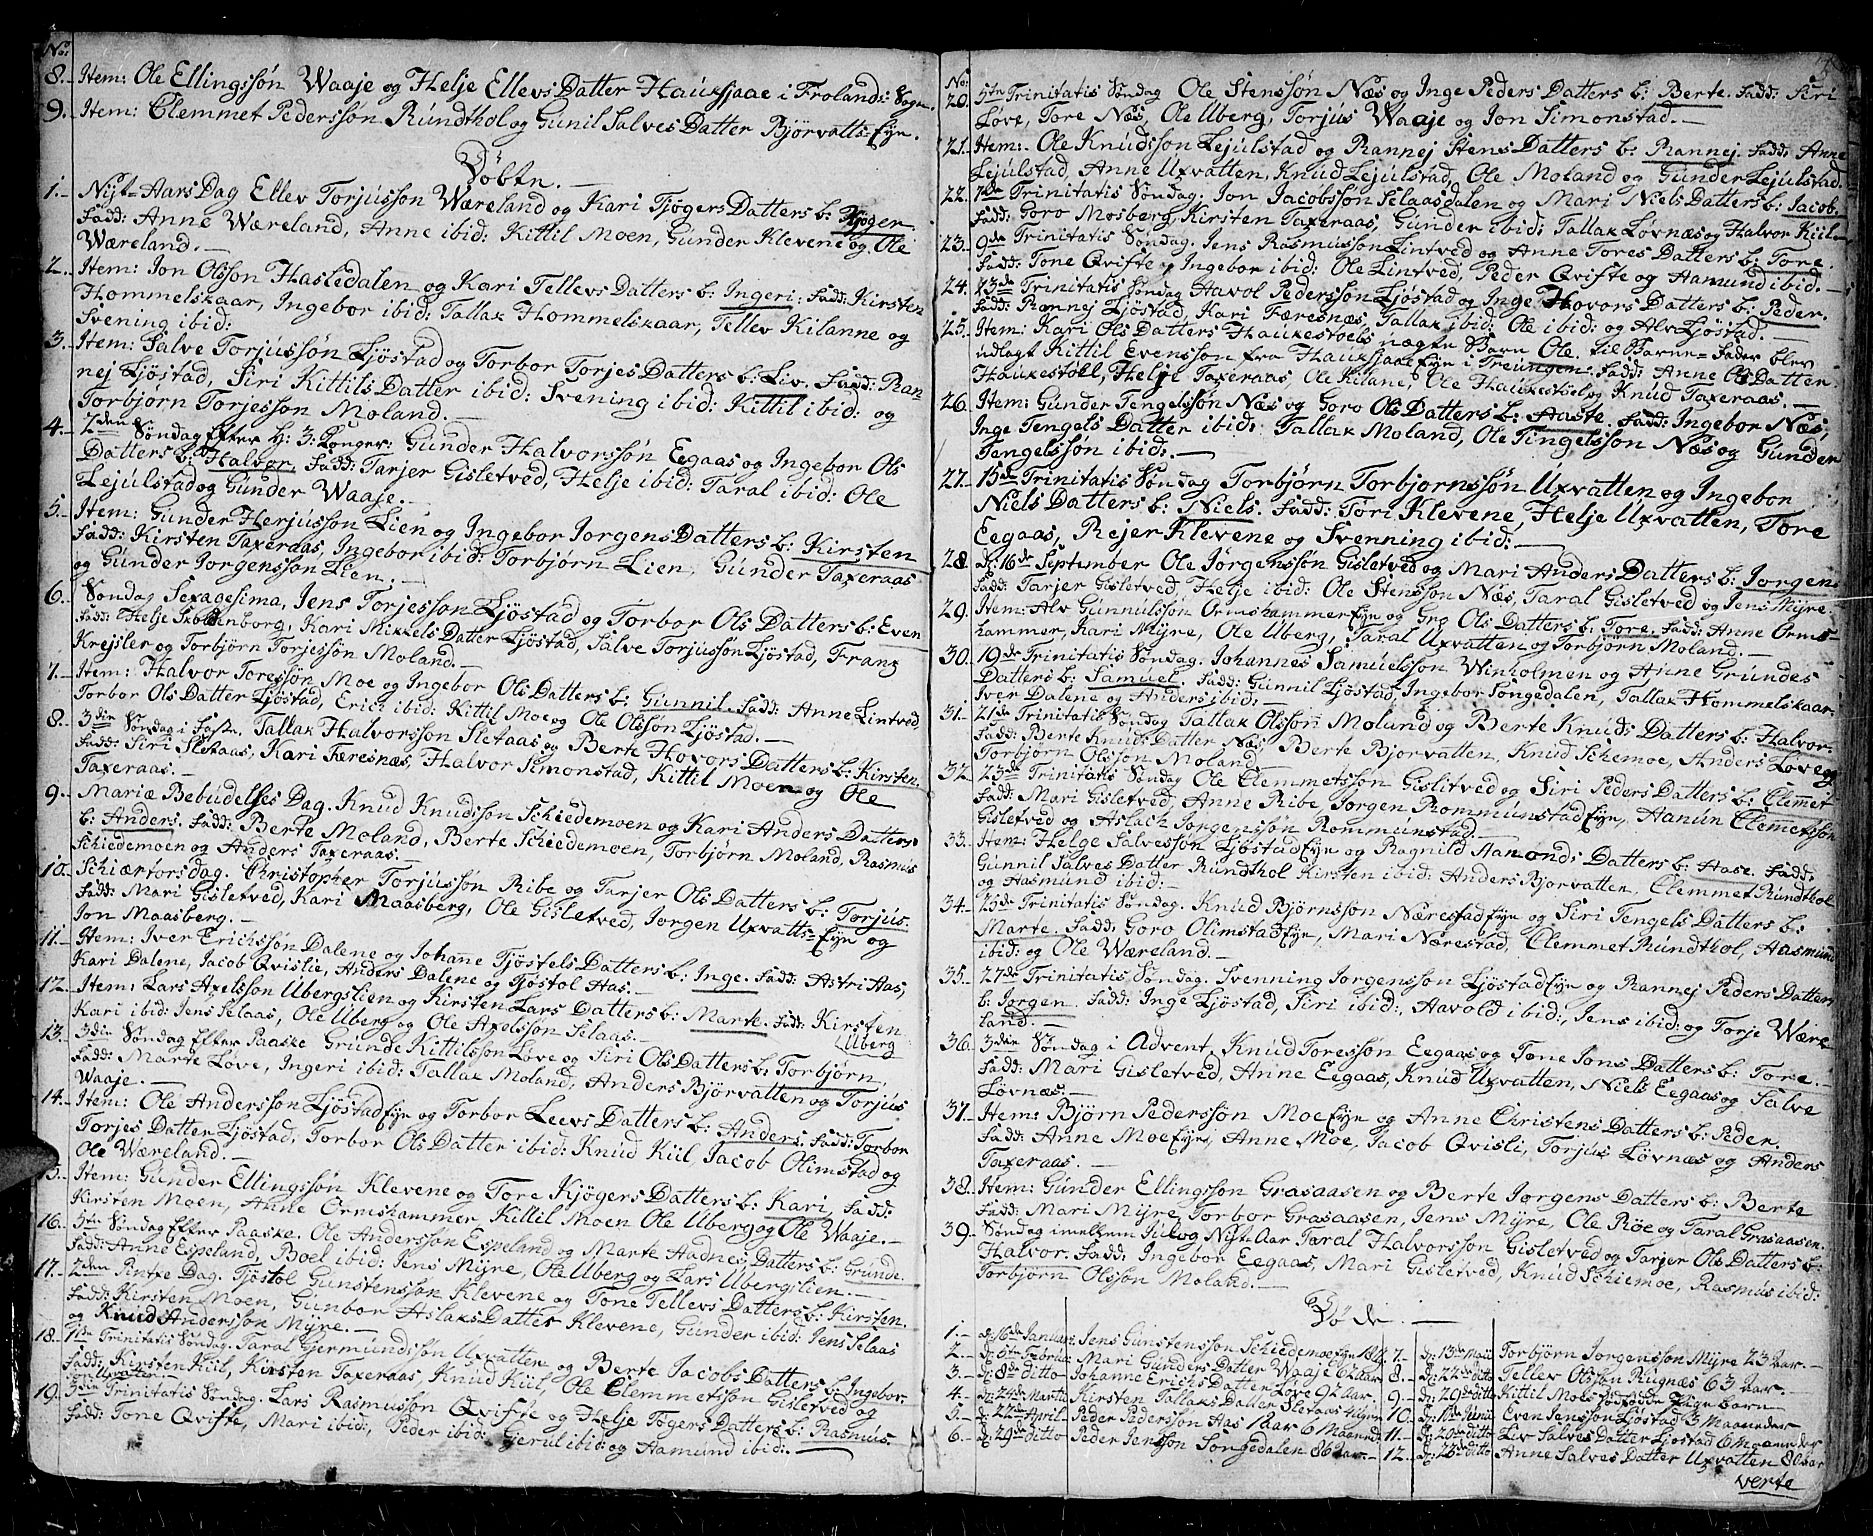 No:
8. Item: Ole Ellingssøn Waaje og Helje EllevsDatter Hauxsjaae i Frolands: Sogn.
9. Item: Clemmet Pederssøn Ründthol og Günil SalvesDatter BjörvattsEjn.
Døbte.
1. Nyt-AarsDag Ellev Torjussøn Wæreland og Kari TjøgersDatters b: Kjøger
Fadd: Anne Wæreland, Anne ibid: Kittil Moen, Günder Klevene og Ole
Wæreland.
2. Item: Jon Olssøn Hasledalen og Kari TellevsDatters b: Ingeri. Fadd: Kirsten
Hommelskaar, Ingebor ibid: Tallak Hommelskaar, Tellev Kilanne og
Svening ibid:
3. Item: Salve Torjussøn Ljøstad og Torbor TorjesDatters b: Liv. Fadd: Ran
nej Ljøstad, Siri KittilsDatter ibid: Svening ibid: Kittil ibid: og
Torbjørn Torjessøn Moland.
4. 2den Søndag Efter H: 3: Konger: Günder Halvorssøn Eegaas og Ingebor Ols
Datters b: Halvor. Fadd: Tarjer Gisletved, Helje ibid: Taral ibid: Ole
Lejulstad og Günder Waaje.
5. Item: Günder Herjussøn Lien og Ingebor JorgensDatters b: Kirsten
Fadd: Kirsten Taxeraas, Ingebor ibid: Torbjørn Lien, Günder Taxeraas
og Günder Jorgenssøn Lien.
6. Søndag Sexagesima, Jens Torjessøn Ljøstad og Torbor OlsDatters b: Even
Fadd: Helje Skottenborg, Kari MikkelsDatter Ljøstad, Salve Torjussøn Ljøstad, Franz
Krejsler og Torbjørn Torjessøn Moland.
7. Item: Halvor Toressøn Moe og Ingebor OlsDatters b: Günnil. Fadd: Anne Lintved,
Torbor OlsDatter Ljøstad, Eric ibid: Kittil Moe og Ole Olssøn Ljøstad.
8. 3die Søndag i Faste. Tallak Halvorssøn Sletaas og Berte HovorsDatters b: Kirsten.
Fadd: Siri Sletaas, Kari Færesnæs, Halvor Simonstad, Kittil Moen og Ole
Taxeraas.
9. Mariæ Bebudelses Dag. Knud Knudssøn Schiedemoen og Kari AndersDatters
b: Anders. Fadd: Berte Moland, Berte Schiedemoen, Torbjørn Moland, Rasmus
Schiedemoen og Anders Taxeraas.
10. Schiærtorsdag. Christopher Torjussøn Ribe og Tarjer OlsDatters b: Torjus.
Fadd: Mari Gisletved, Kari Maasberg, Ole Gisletved, Jorgen UxvattsEjn og
Jon Maasberg.
11. Item: Iver Erichssøn Dalene og Johane TjøstelsDatters b: Inge. Fadd: Astri Aas,
Kari Dalene, Jacob Qvislie, Anders Dalene og Tjøstol Aas.
12. Item: Lars Axelssøn Ubergslien og Kirsten LarsDatters b: Marte. Fadd: Kirsten
Kari ibid: Jens Selaas, Ole Uberg og Ole Axelssøn Selaas. (Uberg
13. 3die Søndag Efter Paaske Gründe Kittilssøn Løve og Siri OlsDatters b: Torbjørn.
Fadd: Marte Løve, Ingeri ibid: Tallak Moland, Anders Bjørvatten og Torjus
Waaje.
14. Item: Ole Anderssøn LjøstadEjn og Torbor LeevsDatters b: Anders. Fadd: Torbor
TorjesDatter Ljøstad, Torbor OlsDatter ibid: Knud Kiil, Jacob Olimstad og
Ole Wæreland.
15. Item: Günder Ellingssøn Klevene og Tore KjøgersDatters b: Kari. Fadd:
Kirsten Moen, Anne Ormshammer, Kittil Moen Ole Uberg og Ole Waaje.
16. 5te Søndag Efter Paaske. Ole Anderssøn Espeland og Marte AadnesDatters b: Gründe.
Fadd: Anne Espeland, Boel ibid: Jens Mÿre, Ole Uberg og Lars Ubergslien.
17. 2den Pintze Dag. Tjøstol Gunstenssøn Klevene og Tone TellevsDatters b: Kirsten.
Fadd: Kirsten Moen, Gunbor AslaksDatter Klevene, Günder ibid: Jens Selaas
og Knud Anderssøn Mÿre.
18. 1ste Trinitatis Søndag. Taral Germundssøn Uxvatten og Berte JacobsDatters b: Ingebor.
Fadd: Kirsten Kiil, Kirsten Taxeraas, Knud Kiil, Ole Clemmetssøn Gisletved og
Jon Uxvatten.
19. 3die Trinitatis Søndag. Lars Rasmussøn Qvifte og Helje TogersDatters b: Rasmus.
Fadd: Tone Qvifte, Mari ibid: Peder ibid: Gjerul ibid: og Aamund ibid:
No:
20. 5te Trinitatis Søndag Ole Stenssøn Næs og Inge PedersDatters b: Berte. Fadd: Siri
Løve, Tore Næs, Ole Uberg, Torjus Waaje og Jon Simonstad.
21. Item: Ole Knudssøn Lejulstad og Rannej StensDatters b: Rannej. Fadd: Anne
Lejulstad, Anne Uxvatten, Knud Lejulstad, Ole Moland og Günder Lejulstad.
22. 7de Trinitatis Søndag. Jon Jacobssøn Selaasdalen og Mari NielsDatters b: Jacob.
Fadd: Goro Mosberg, Kirsten Taxeraas, Günder ibid: Tallak Løvnæs og Halvor Kiil
23. 9de Trinitatis Søndag. Jens Rasmussøn Lintved og Anne ToresDatters b: Tore.
Fadd: Tone Qvifte, Ingebor ibid: Ole Lintved, Peder Qvifte og Aamund ibid:
24. 13de Trinitatis Søndag Havol Pederssøn Ljøstad og Inge HovorsDatters b: Peder.
Fadd: Rannej Ljøstad, Kari Færesnæs, Tallak ibid: Ole ibid: og Alv Ljøstad.
25. Item: Kari OlsDatters Haukestøels uægte Barn Ole. Til Barne-Fader blev
udlagt Kittil Evenssøn fra HauxsjaaeEjn i Treungen. Fadd: Anne OlsDatter
Haukestøll, Helje Taxeraas, Ole Kiland, Ole Haukestøel og Knud Taxeraas.
26. Item: Günder Tengelssøn Næs og Goro OlsDatters b: Aaste. Fadd: Ingebor Næs,
Inge TengelsDatter ibid: Tallak Moland, Ole Tingelssøn Næs og Günder
Tengelssøn ibid:
27. 15de Trinitatis Søndag Torbjørn Torbjørnssøn Uxvatten og Ingebor
NielsDatters b: Niels. Fadd: Tori Klevene, Helje Uxvatten, Tore
Eegaas, Rejer Klevene og Svenning ibid:
28. D: 16de September Ole Jørgenssøn Gisletved og Mari AndersDatters b: Jorgen.
Fadd: Tarjer Gisletved, Helje ibid: Ole Stenssøn Næs, Taral Gisletved og Jens Mÿre.
29. Item: Alv Günnulssøn OrmshammerEjn og Gro OlsDatters b: Tore. Fadd: Anne Orms
hammer, Kari Mÿre, Ole Uberg, Taral Uxvatten og Torbjørn Moland.
30. 19de Trinitatis Søndag. Johannes Samuelssøn Winholmen og Anne Gründes
Datters b: Samuel. Fadd: Günnil Ljøstad, Ingebor Songedalen, Tallak Hommelskaar,
Iver Dalene og Anders ibid:
31. 21de Trinitatis Søndag Tallak Olssøn Moland og Berte KnudsDatters b: Halvor.
Fadd: Berte KnudsDatter Næs, Berte Bjorvatten, Knud Schiemoe, Anders Løve og
Torbjørn Olssøn Moland.
32. 23de Trinitatis Søndag Ole Clemmetssøn Gisletved og Siri PedersDatters b: Clemmet
Fadd: Mari Gisletved, Anne Ribe, Jorgen RommunstadEjn, Aanun Clemmetssøn
Gisletved og Aslach Jorgenssøn Rommunstad.
33. Item: Helge Salvessøn LjøstadEjn og Ragnild AamondsDatters b: Aase. Fadd:
Gunnil SalvesDatter Rundthol Kirsten ibid: Anders Bjorvatten, Clemmet Ründthol
og Aasmund ibid:
34. 25de Trinitatis Søndag. Knud Bjørnssøn NærestadEjn og Siri TengelsDatters b:
Marte. Fadd: Goro OlimstadEjn, Mari Nærestad, Clemmet Rundthol, Aasmund
ibid: og Ole Wæreland.
35. 27de Trinitatis Søndag. Svenning Jorgenssøn LjøstadEjn og Rannej PedersDatters
b: Jorgen. Fadd: Inge Ljøstad, Siri ibid:, Aavold ibid:, Jens ibid: og Torje Wære
land.
36. 3die Søndag i Advent. Knud Toressøn Eegaas og Tone JonsDatters b: Tore.
Fadd: Mari Gisletved, Anne Eegaas, Knud Uxvatten, Niels Eegaas og Salve
Løvnæs.
37. Item: Bjørn Pederssøn MoeEjn og Anne ChristensDatters b: Peder.
Fadd: Anne MoeEjn, Anne Moe, Jacob Qvisli, Torjus Løvnæs og Anders
Taxeraas.
38. Item: Günder Ellingssøn Grasaasen og Berte JorgensDatters b: Berte
Fadd: Mari Mÿre, Torbor Grasaasen, Jens Mÿre, Ole Røe og Taral Grasaasen.
39. Søndag imellem Jul og Nyt-Aar Taral Halvorssøn Gisletved og Tarjer OlsDatters b:
Halvor. Fadd: Ingebor Eegaas, Mari Gisletved, Knud Schiemoe, Rasmus ibid:
Torbjørn Olssøn Moland.
Døde.
1. D: 16de Januar Jens Gunstenssøn SchiedemoeEjn
2. D: 5te Februar Mari GündersDatter Waaje 62 Aar
3. D: 8de ditto Johanne ErichsDatter Løve 92 Aar.
4. D: 24de Martii Kirsten TallaksDatter Sletaas
5. D: 22de April Peder Pederssøn Aas 1 Aar 6 Maaned
6. D: 29de ditto Peder Jenssøn Songedalen 86 Aar.
7. D: 13de Maii Torbjørn Jorgenssøn Mÿre 23 Aar.
8. D: 22de ditto Tellev Olssøn Rugnæs 63 Aar.
9. D: 29de ditto Kittil Moes dødfødde Pigebarn
10. D: 11te Junii Even Jenssøn Ljøstad 3 Maaneder
11. D: 20de ditto Liv SalvesDatter Ljøstad 6 Maaneder
12. D: 23de ditto Anne SalvesDatter Uxvatten 80 Aar
verte